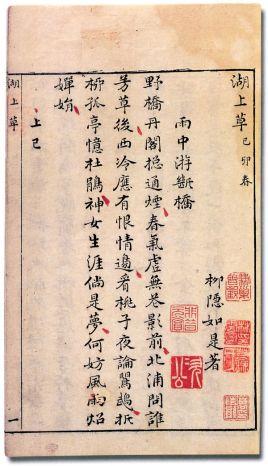 湖上草 己卯春
柳隱如是著
雨中游斷橋
野橋丹閣捴通煙春氣虛無影前北浦問誰
芳草後西泠應有恨情邊看桃子夜論折
柳孤亭憶杜鵑神女生涯倘是夢何妨風雨炤
嬋娟
上巳
湖上草
一